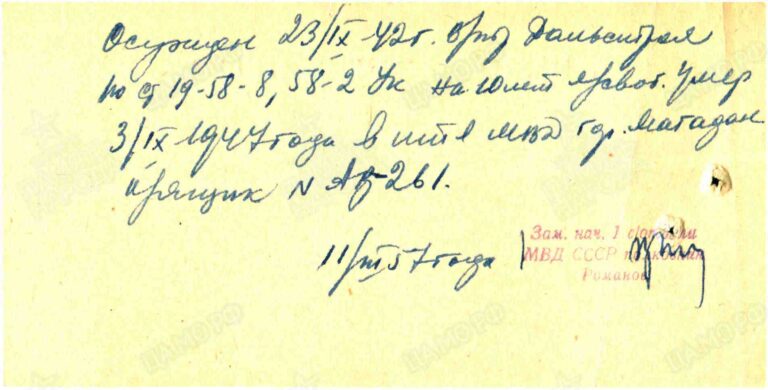 Осужден 23/IX-42г. в/тр Дальстроя
по ст 19-58-8, 58-2 УК на 10 лет л/своб. Умер
3/IX 1947 года в ИТЛ МВД гор. Магадан
п/ящик N АВ-261.
11/III 57 года
Зам. нач. 1 спецотдела
МВД СССР полковник
Романов
ЦАМО РФ